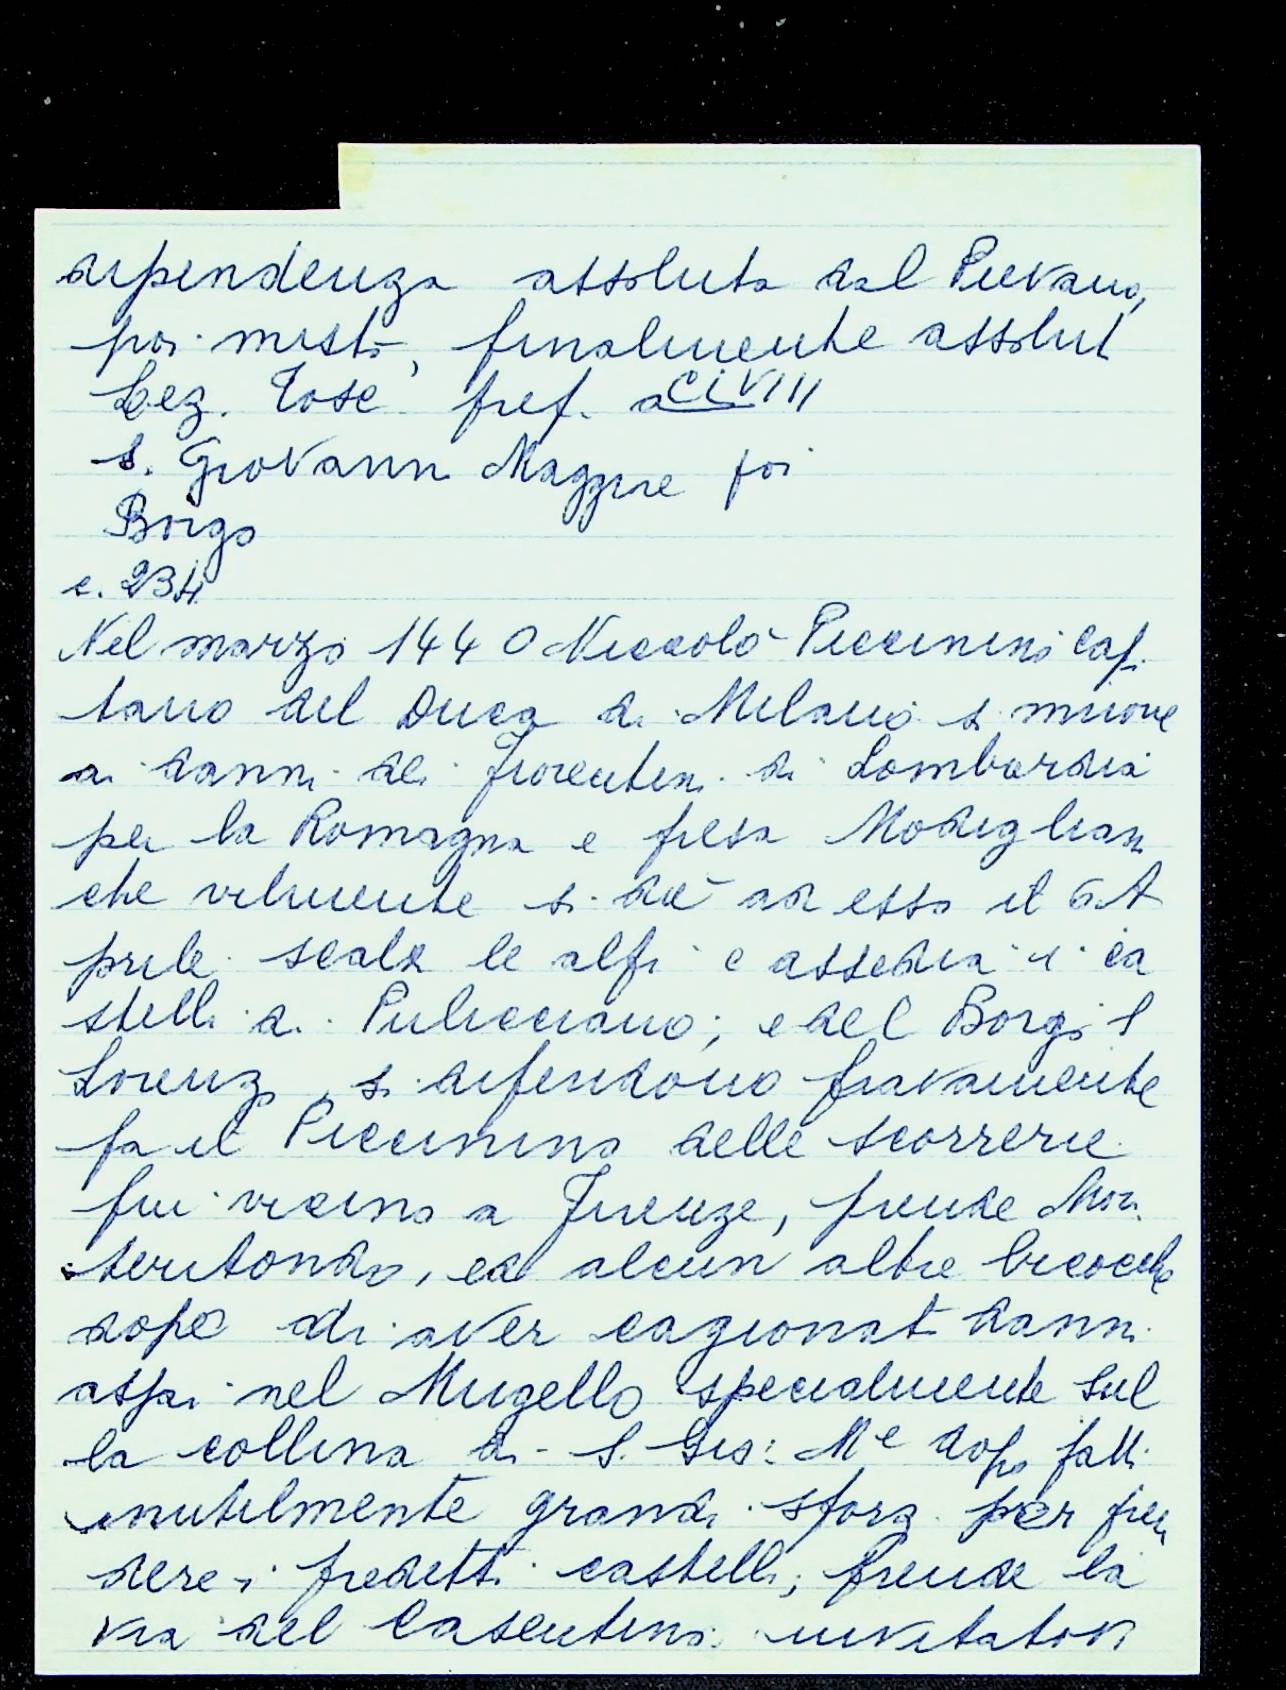 dipendenza assoluta dal Pievano,
poi misto, finalmente assolut
Lez. Tosc pref. a CLVIII
S. Giovanni Maggiore poi
Borgo
c. 234
Nel marzo 1440 Niccolò Piccinino Capi
tano del Duca di Milano si muove
ai danni dei Fiorentini di Lombardia
per la Romagna e presa Modigliana
che vilmente si dà ad esso il 6 A
prile scala le alpi e assedia i ca
stelli di Pulicciano; e del Borgo S
Lorenzo, si difendono bravamente
fa il Piccinino delle scorrerie
fin vicino a Firenze, prende Mon
teritondo, ed alcun altre bicocche
dopo di aver cagionat danni
assai nel Mugello specialmente sul
la collina di S. Gio: Me dopo fatti
inutilmente grandi sforzi per pren
dere i predetti castelli, prende la
via del Casentino invitatovi